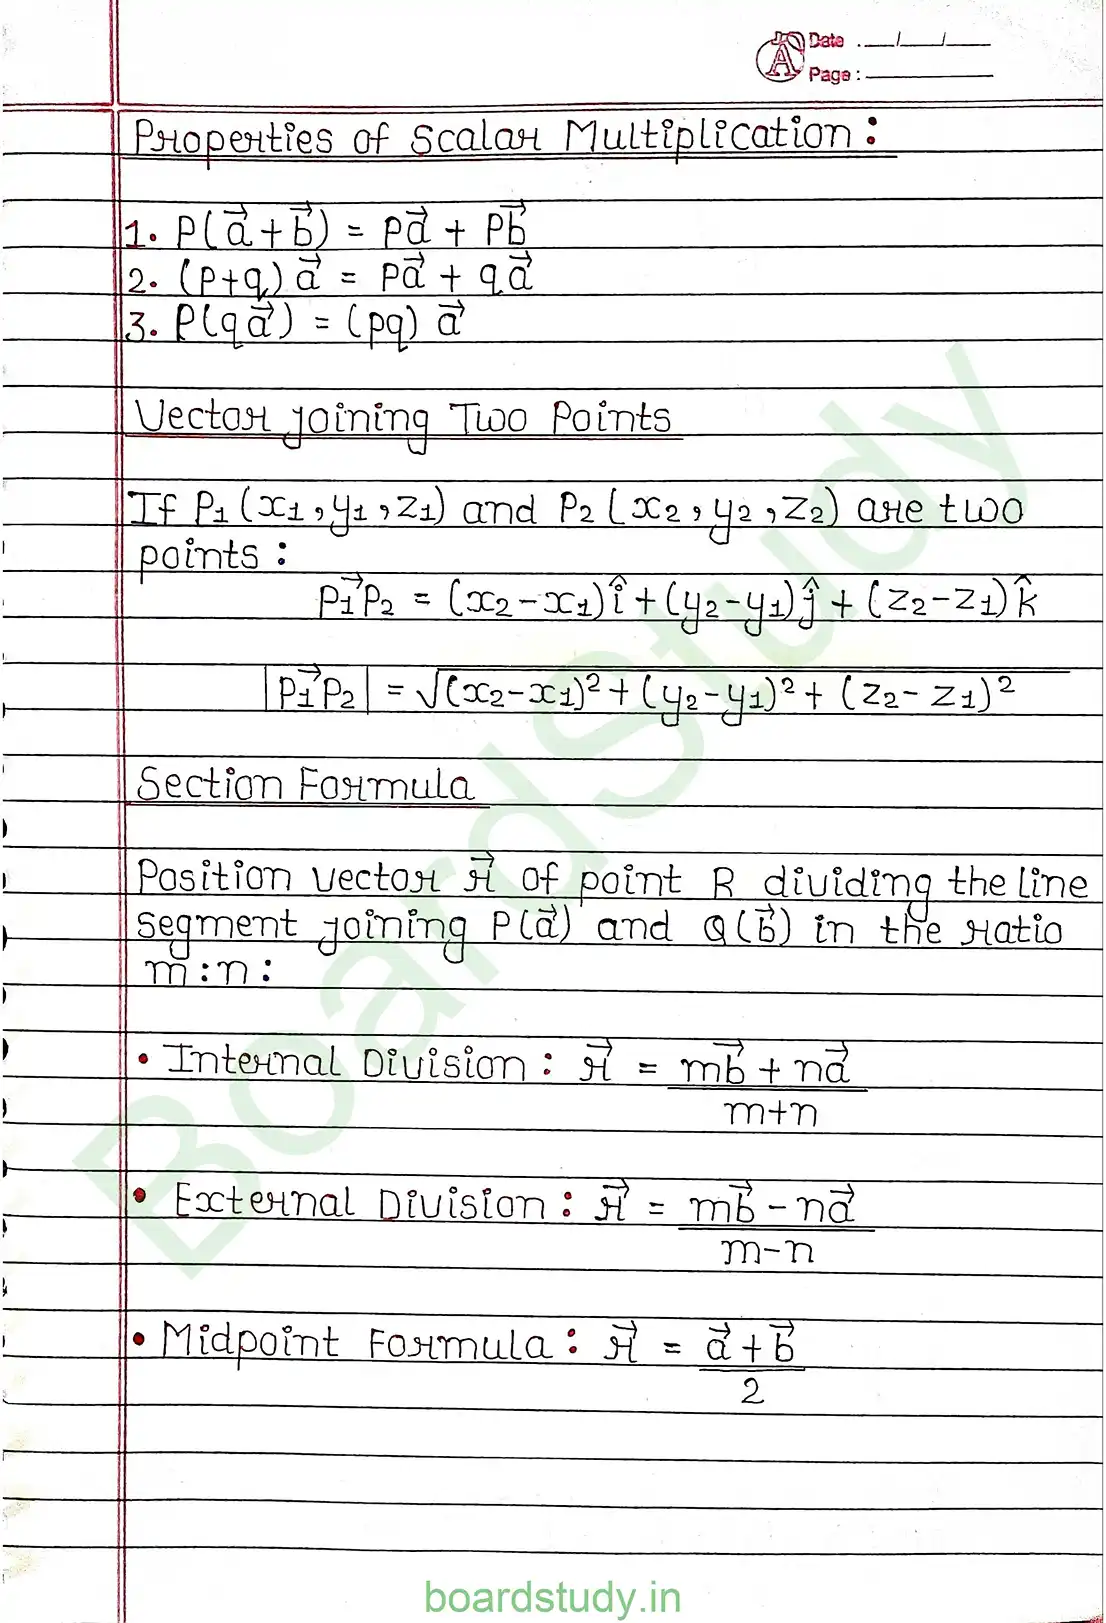 Date : __/__/__
Page :
Properties of Scalar Multiplication :
1. P(a⃗ + b⃗) = pa⃗ + pb⃗
2. (p+q) a⃗ = pa⃗ + qa⃗
3. P(qa⃗) = (pq) a⃗
Vector joining Two Points
If P₁(x₁, y₁, z₁) and P₂(x₂, y₂, z₂) are two
points :
P₁P₂⃗ = (x₂-x₁)î + (y₂-y₁)ĵ + (z₂-z₁)k̂
|P₁P₂⃗| = √(x₂-x₁)² + (y₂-y₁)² + (z₂-z₁)²
Section Formula
Position vector r⃗ of point R dividing the line
segment joining P(a⃗) and Q(b⃗) in the ratio
m : n :
• Internal Division : r⃗ = mb⃗ + na⃗
m+n
• External Division : r⃗ = mb⃗ - na⃗
m-n
• Midpoint Formula : r⃗ = a⃗ + b⃗
2
BoardStudy
boardstudy.in